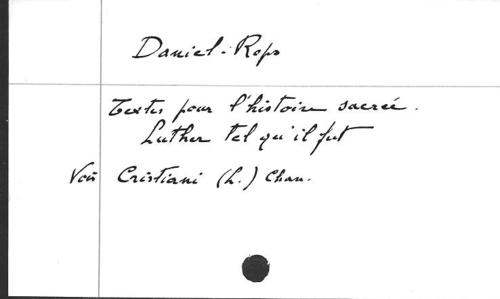 Daniel-Rops
Textes pour l'histoire sacrée.
Luther tel qu'il fut
Voir Cristiani (L.) Chan.